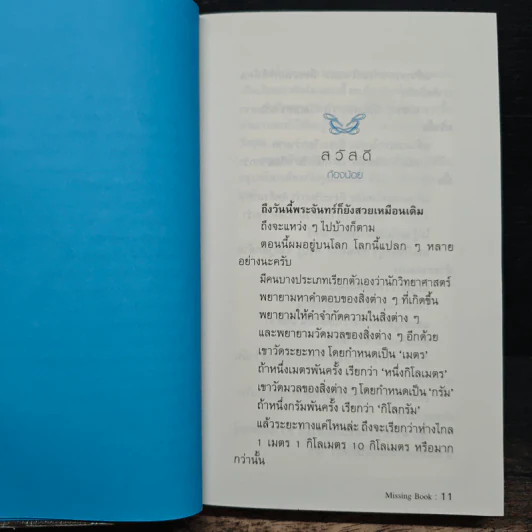 สวัสดี
ก้องน้อย
ถึงวันนี้พระจันทร์ก็ยังสวยเหมือนเดิม
ถึงจะแหว่ง ๆ ไปบ้างก็ตาม
ตอนนี้ผมอยู่บนโลก โลกนี้แปลก ๆ หลาย
อย่างนะครับ
มีคนบางประเภทเรียกตัวเองว่านักวิทยาศาสตร์
พยายามหาคำตอบของสิ่งต่าง ๆ ที่เกิดขึ้น
พยายามให้คำจำกัดความในสิ่งต่าง ๆ
และพยายามวัดมวลของสิ่งต่าง ๆ อีกด้วย
เขาวัดระยะทาง โดยกำหนดเป็น ‘เมตร’
ถ้าหนึ่งเมตรพันครั้ง เรียกว่า ‘หนึ่งกิโลเมตร’
เขาวัดมวลของสิ่งต่าง ๆ โดยกำหนดเป็น ‘กรัม’
ถ้าหนึ่งกรัมพันครั้ง เรียกว่า ‘กิโลกรัม’
แล้วระยะทางแค่ไหนล่ะ ถึงจะเรียกว่าห่างไกล
1 เมตร 1 กิโลเมตร 10 กิโลเมตร หรือมาก
กว่านั้น
Missing Book : 11